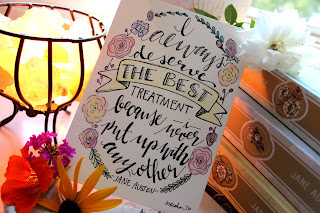 I
always
deserve
THE BEST
TREATMENT
because I never
put up with
any other
-JANE AUSTEN-
JANE AUS